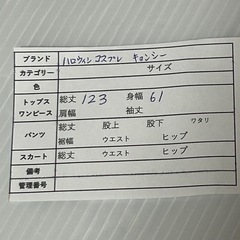 ブランド ハロウィン コスプレ キョンシー
カテゴリー サイズ
色
トップス 総丈 123 身幅 61
ワンピース 肩幅 袖丈
パンツ 総丈 股上 股下 ワタリ
裾幅 ウエスト ヒップ
スカート 総丈 ウエスト ヒップ
備考
管理番号